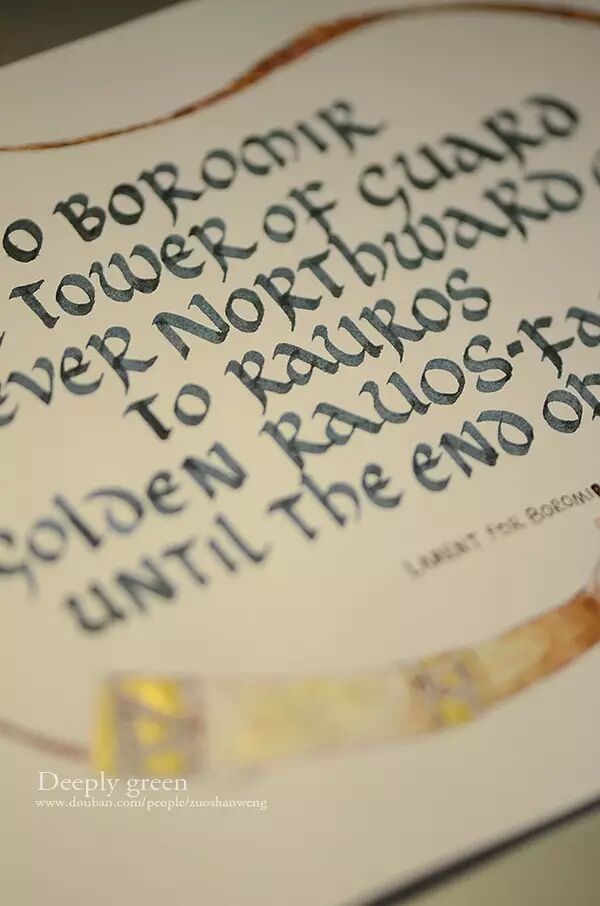 O BOROMIR
TOWER OF GUARD
EVER NORTHWARD
TO RAUROS
GOLDEN RAUOS-FA
UNTIL THE END OF
LAMENT FOR BOROMIR
Deeply green
www.douban.com/people/zuoshanweng